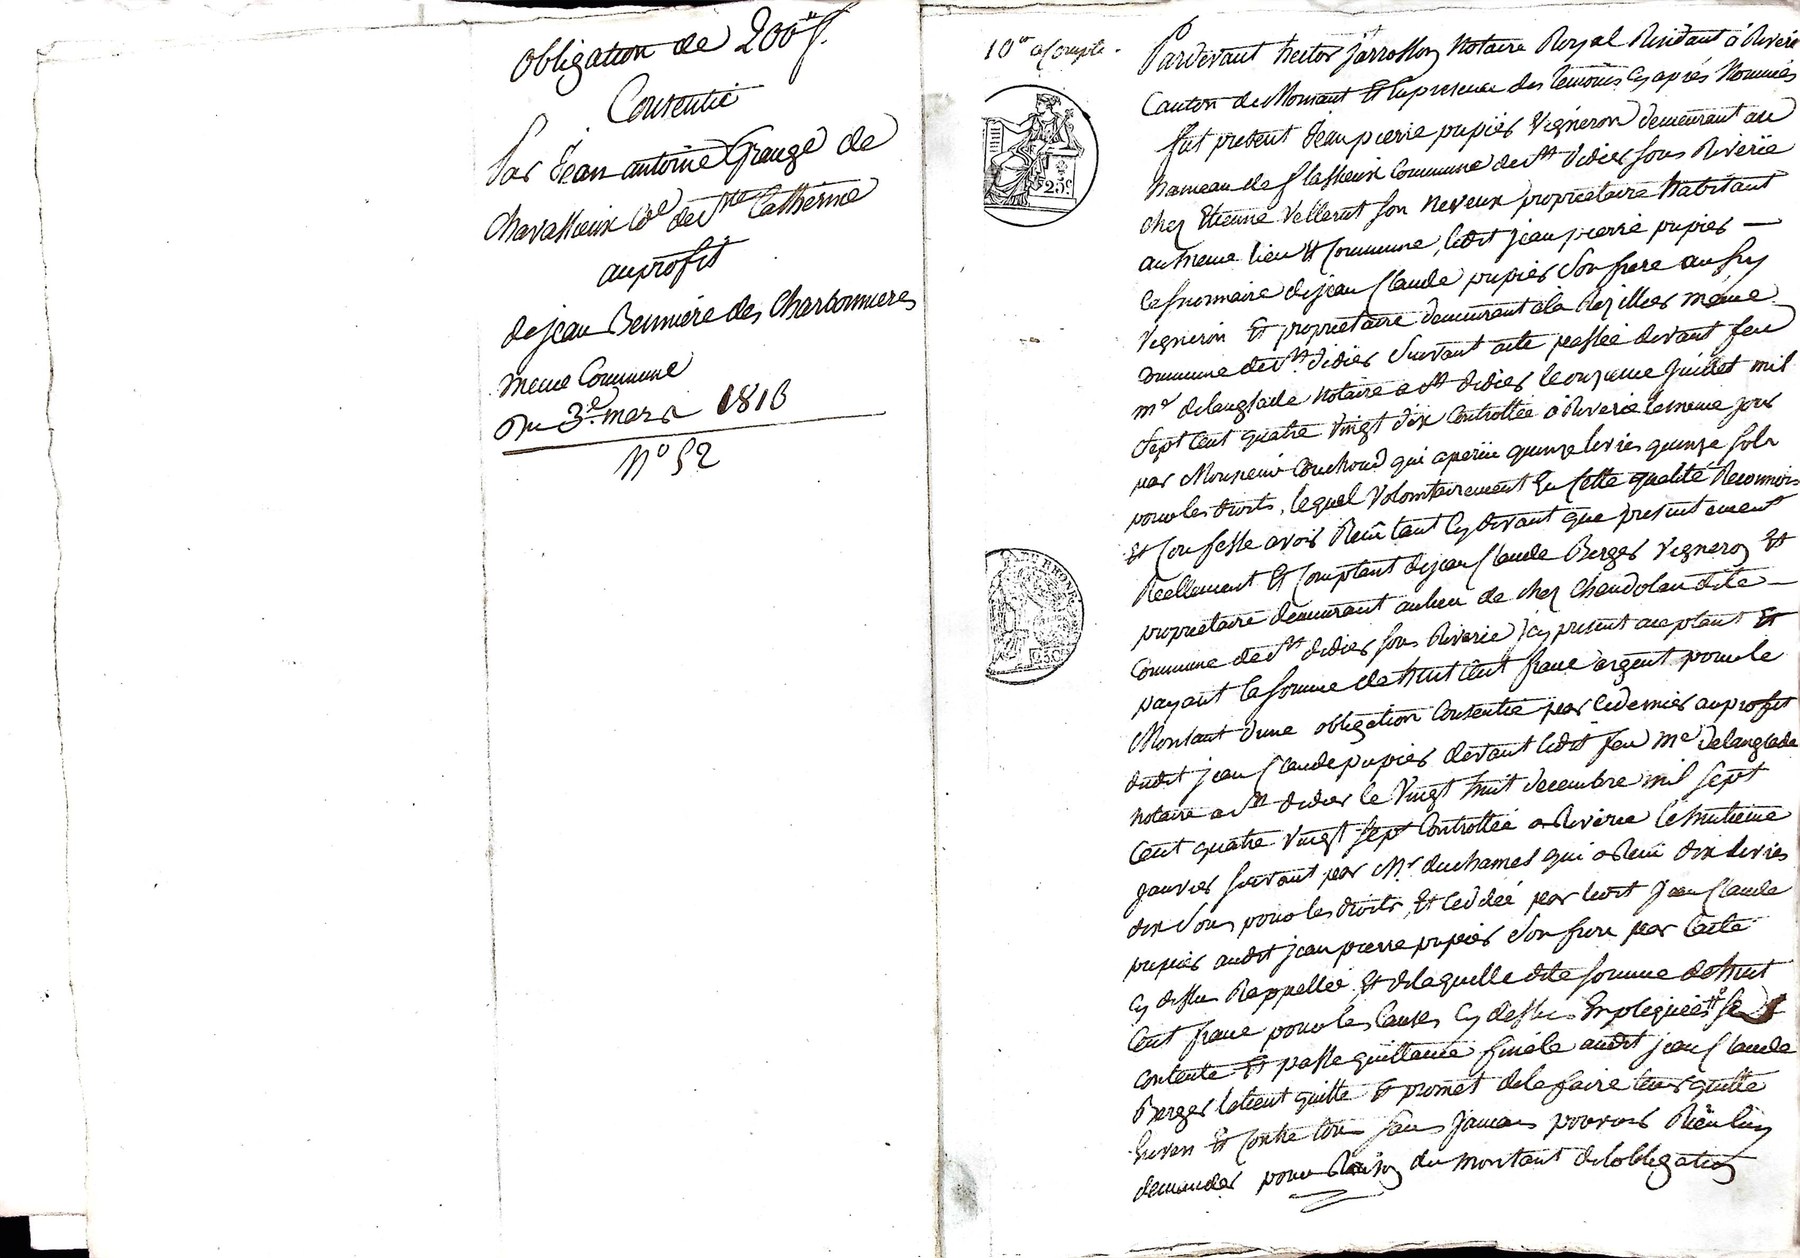 obligation de 200 ff.
Consentie
Par Jean antoine Grange de
Chavassieux Cne de Ste Catherine
au profit
de jean Bennière des Charbonnieres
meme Commune
Du 3e mars 1816
N° 52
10e a Compte.
Pardevant hector jarrosson Notaire Royal Résidant à Riverie
Canton de Mornant Et En presence des temoins Cy après Nommés
fut present Jean pierre pupier Vigneron demeurant au
hameau de flassieux Commune de St didier sous Riverie
chez Etienne Vellerut son Neveux propriétaire habitant
au meme lieu Et Commune, ledit jean pierre pupier —
Cessionnaire de jean Claude pupier Son frere aussy
Vigneron Et proprietaire demeurant a la Rézillier même
Commune de St didier Suivant acte passée devant feu
me delanglade Notaire a St didier le onzieme Juillet mil
Sept Cent quatre Vingt dix Controllée à Riverie le meme jour
par Monsieur Couchoud qui a perçu quinze livres quinze sols
pour les droits, lequel Volontairement En Cette qualité Reconnois
Et Confesse avoir Reçu tant Cy devant que presentement
Réellement Et Comptant de jean Claude Berger Vigneron Et
proprietaire demeurant au lieu de chez Chandolan dite —
Commune de St didier sous Riverie icy present aceptant Et
payant la somme de huit Cent franc argent pour le
Montant d'une obligation Consentie par ce dernier au profit
dudit jean Claude pupier devant ledit feu Me delanglade
Notaire a St didier le Vingt huit decembre mil Sept
Cent quatre Vingt Sept Controllée a Riverie le huitieme
janvier suivant par Mr duchamel qui a Reçu dix livres
dix Sous pour les droits, Et Ceddée par ledit Jean Claude
pupier audit jean pierre pupier Son frere par l'acte
Cy dessus Rappellée, Et de laquelle dite somme de huit
Cent franc pour les Causes Cy dessus Expliquées se
Contente Et passe quittance finale audit jean Claude
Berger le tient quitte Et promet de le faire tenir quitte
Envers Et Contre tous sans jamais pouvoir Rien luy
demander pour Raison du montant de l'obligation
25c
RHONE
25c